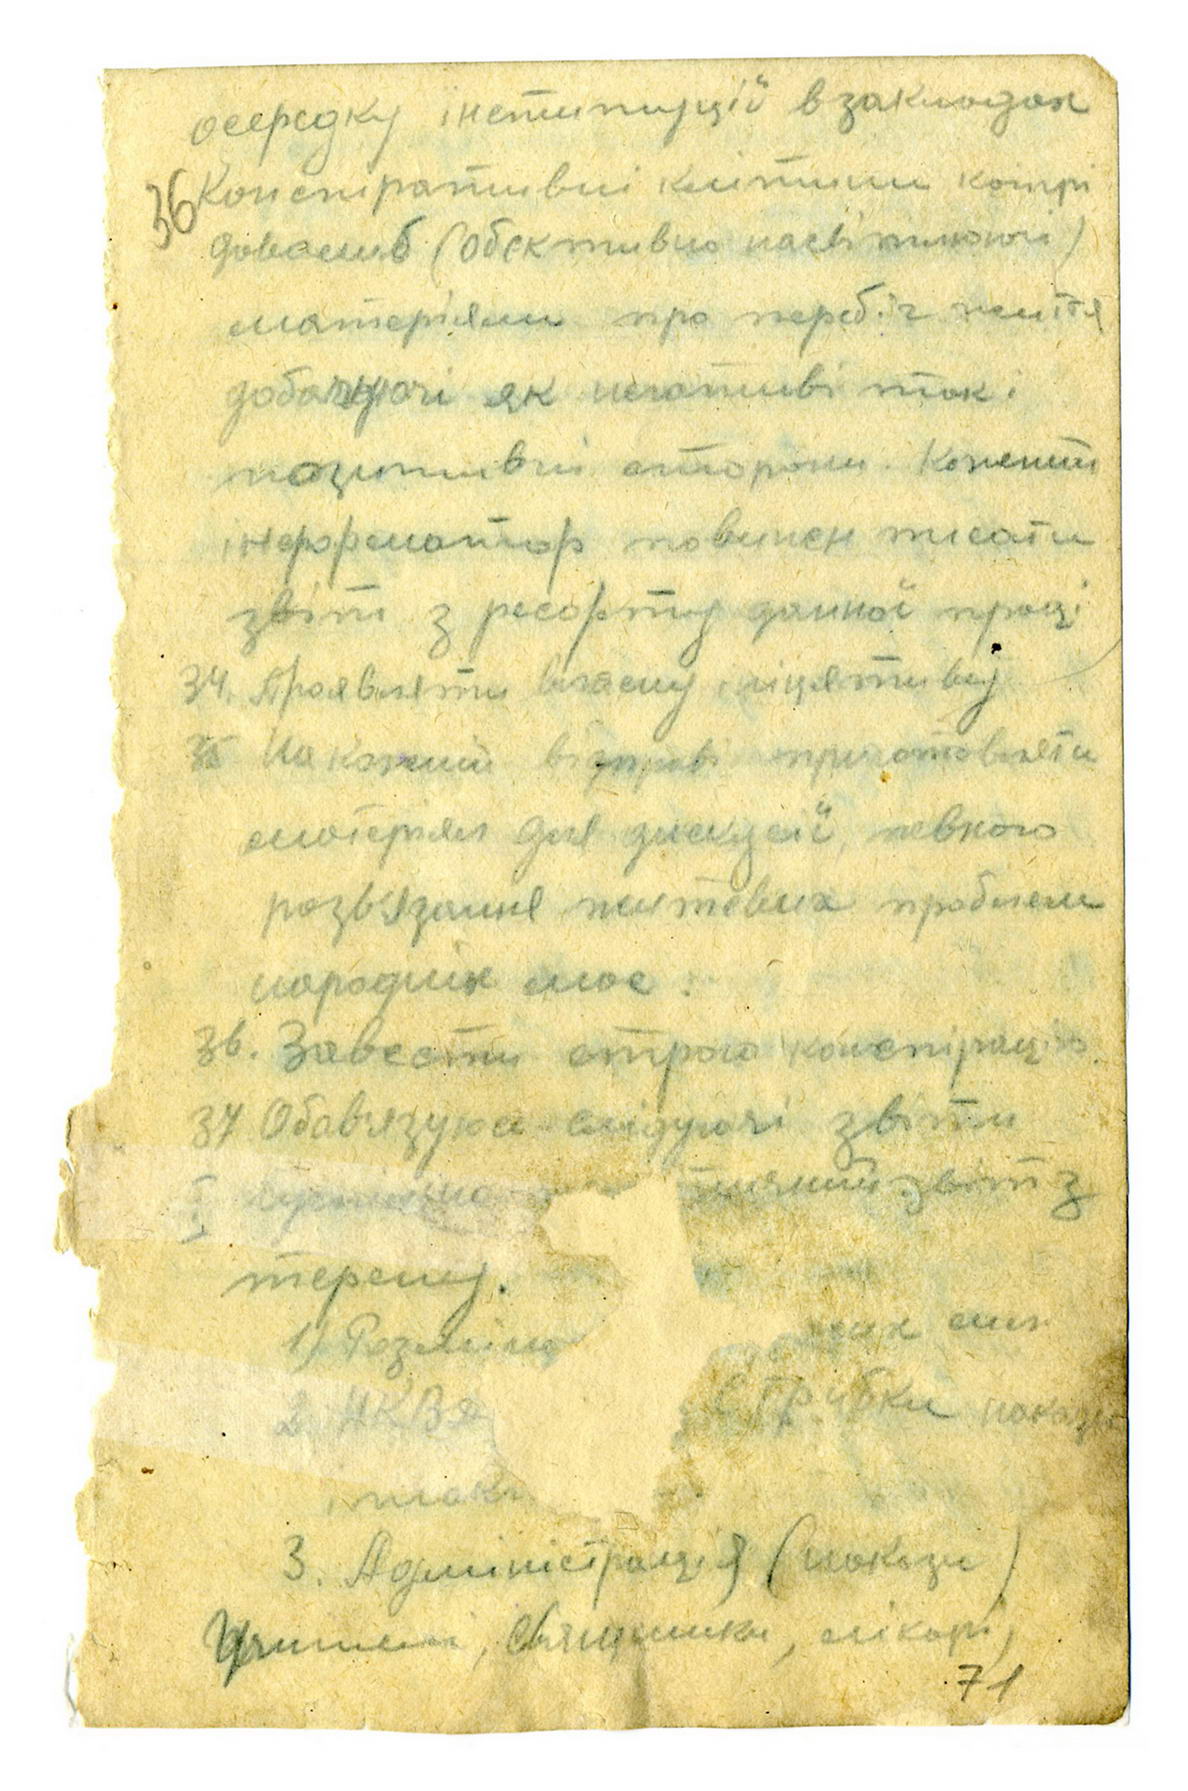 осередку інституцій в закладах
36 Конспіративні клітини котрі
(обєктивно насвітлюючі)
матеріяли про перебіг життя
добачуючі як негативні так і
позитивні сторони. Кожний
інформатор повинен писати
звіт з ресорту данної праці
34. Проявляти власну ініціятиву
35 На кожний відправі приготовляти
матеріял для дискусій, певного
розвязання життєвих проблем
народніх мас.
36. Завести строго конспірацію
37 Обовязуюсе слідуючі звіти
I звіт з
терену.
1)
2. НКВД стрибки накази
3. Адміністрація (накази)
Учителі, священики, лікарі,
71